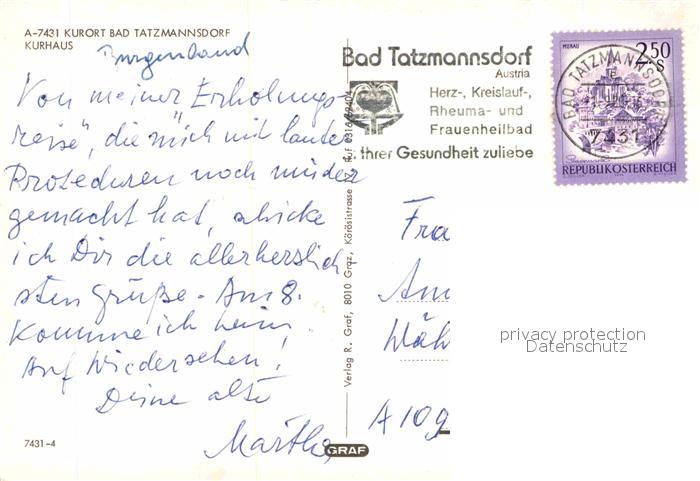 A-7431 KURORT BAD TATZMANNSDORF
KURHAUS
Burgenland
Von meiner Erholungs-
reise", die mich mit lauter
Proteduren noch müder
gemacht hat, schicke
ich Dir die allerherzlich
sten Grüße. Am 8.
komme ich heim!
Auf Wiedersehen!
Deine alte
Martha
7431-4
Verlag R. Graf, 8010 Graz, Körösistrasse
GRAF
Bad Tatzmannsdorf
Austria
Herz-, Kreislauf-,
Rheuma- und
Frauenheilbad
Ihrer Gesundheit zuliebe
MURAU
2.50
S
REPUBLIK ÖSTERREICH
BAD TATZMANNSDORF
7431
Fra
Am
Wäh
A 109
privacy protection
Datenschutz